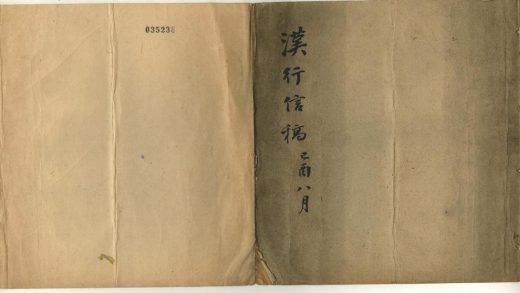 035238
漢行信稿 己酉八月